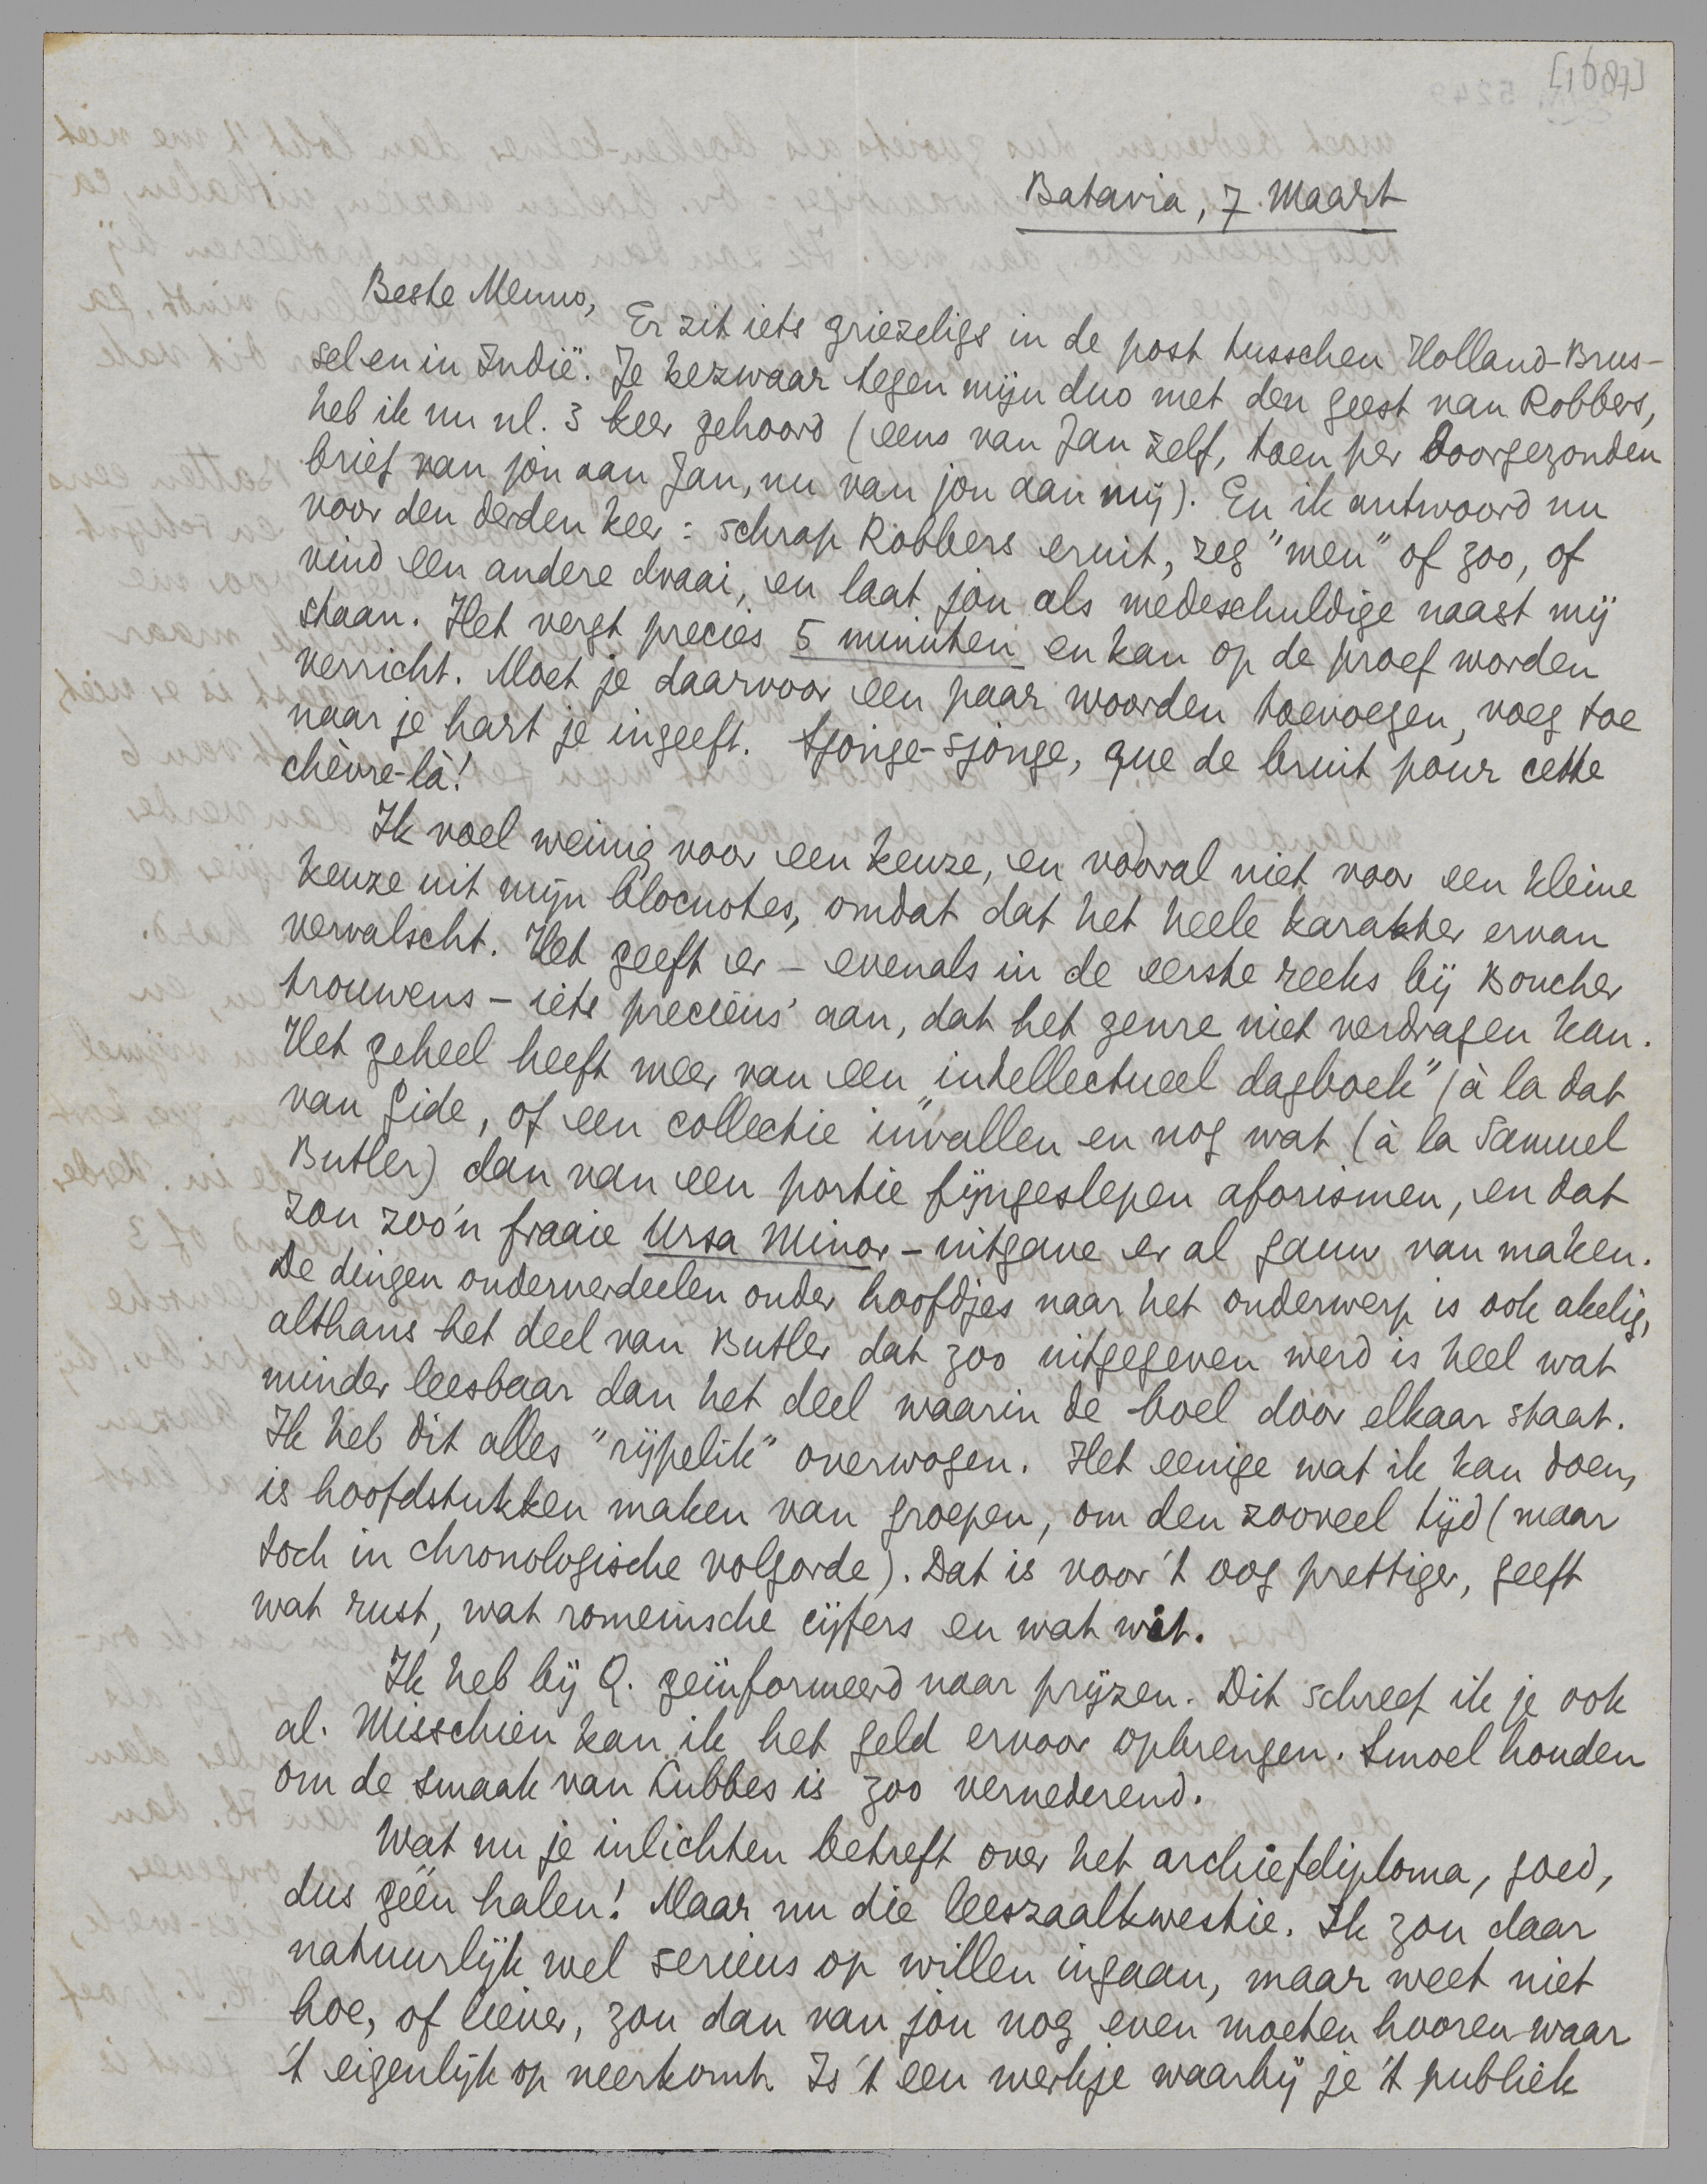 [1087]
Batavia, 7 Maart
Beste Menno,
Er zit iets griezeligs in de post tusschen Holland-Brus-
sel en in Indië. Je bezwaar tegen mijn duo met den geest van Robbers,
heb ik nu nl. 3 keer gehoord (eens van Jan zelf, toen per doorgezonden
brief van jou aan Jan, nu van jou aan mij). En ik antwoord nu
voor den derden keer: schrap Robbers eruit, zeg "men" of zoo, of
vind een andere draai, en laat jou als medeschuldige naast mij
staan. Het vergt precies 5 minuten en kan op de proef worden
verricht. Moet je daarvoor een paar woorden toevoegen, voeg toe
naar je hart je ingeeft. Tjonge-sjonge, que de bruit pour cette
chèvre-là!
Ik voel weinig voor een keuze, en vooral niet voor een kleine
keuze uit mijn blocnotes, omdat dat het heele karakter ervan
vervalscht. Het geeft er - evenals in de eerste reeks bij Boucher
trouwens - iets precieus' aan, dat het genre niet verdragen kan.
Het geheel heeft meer van een "intellectueel dagboek" (à la dat
van Gide, of een collectie "invallen en nog wat (à la Samuel
Butler) dan van een portie fijngeslepen aforismen, en dat
zou zoo'n fraaie Ursa Minor-uitgave er al gauw van maken.
De dingen onderverdeelen onder hoofdjes naar het onderwerp is ook akelig,
althans het deel van Butler dat zoo uitgegeven werd is heel wat
minder leesbaar dan het deel waarin de boel door elkaar staat.
Ik heb dit alles "rijpelik" overwogen. Het eenige wat ik kan doen,
is hoofdstukken maken van groepen, om den zooveel tijd (maar
toch in chronologische volgorde). Dat is voor 't oog prettiger, geeft
wat rust, wat romeinsche cijfers en wat wit.
Ik heb bij Q. geïnformeerd naar prijzen. Dit schreef ik je ook
al. Misschien kan ik het geld ervoor opbrengen. Smoel houden
om de smaak van Lubbes is zoo vernederend.
Wat nu je inlichten betreft over het archiefdiploma, goed,
dus géén halen! Maar nu die leeszaalkwestie. Ik zou daar
natuurlijk wel serieus op willen ingaan, maar weet niet
hoe, of liever, zou dan van jou nog even moeten hooren waar
't eigenlijk op neerkomt. Is 't een werkje waarbij je 't publiek